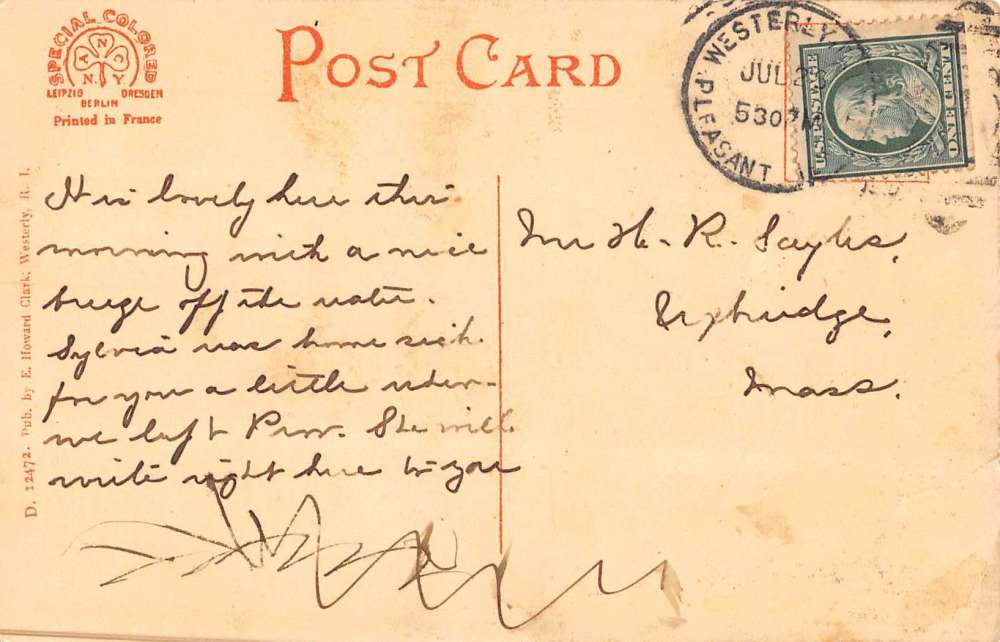 SPECIAL COLORED
ANNYC
LEIPZIG DRESDEN
BERLIN
Printed in France
POST CARD
PLEASANT WESTERLY
JUL 2
530 PM
U.S. POSTAGE
ONE CENT
D. 12472. Pub. by E. Howard Clark, Westerly, R. I.
It is lovely here this
morning with a nice
breeze off the water.
Sylvia was home sick
for you a little when
we left Prov. She will
write right here to you
Mr H. R. Sayles,
Uxbridge,
Mass.